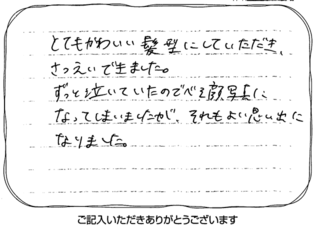 とてもかわいい髪型にしていただき、
さつえいで生ました。
ずっと泣いていたのでべそ顔写真に
なってしまいましたが、それもよい思い出に
なりました。
ご記入いただきありがとうございます